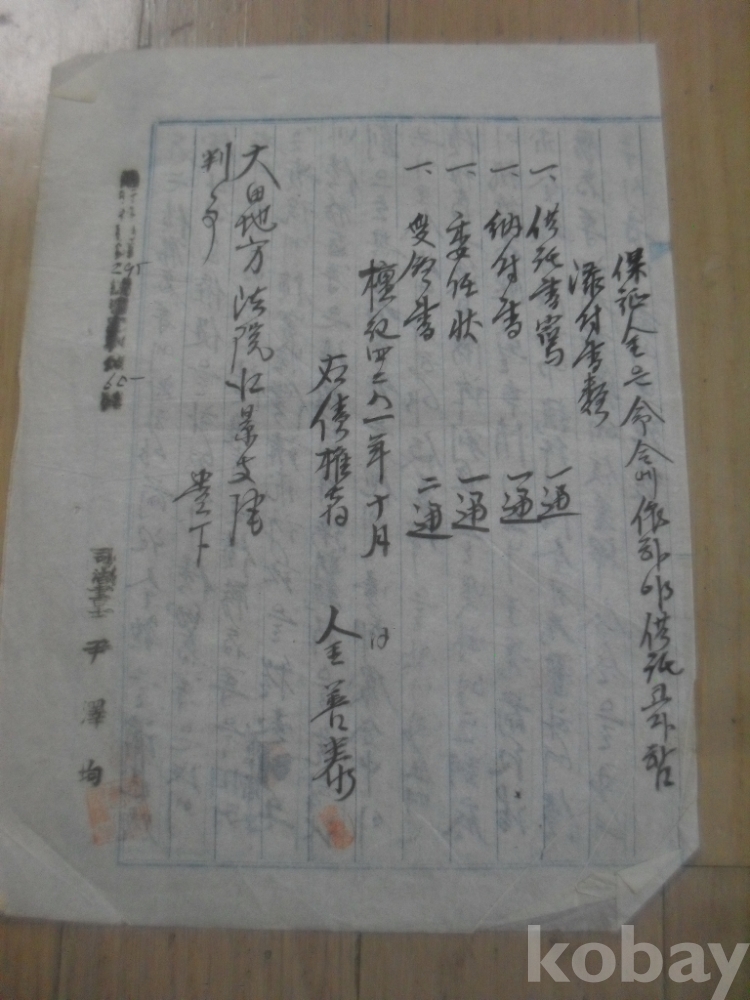 保証金은 命令에 依하야 供託코자함
添付書類
一、供託書寫 一通
一、納付書 一通
一、委任状 一通
一、受領書 二通
檀紀四二八一年十月 日
右債権者 金善泰
大田地方法院
判事 貴下
司法書士 尹澤均
kobay